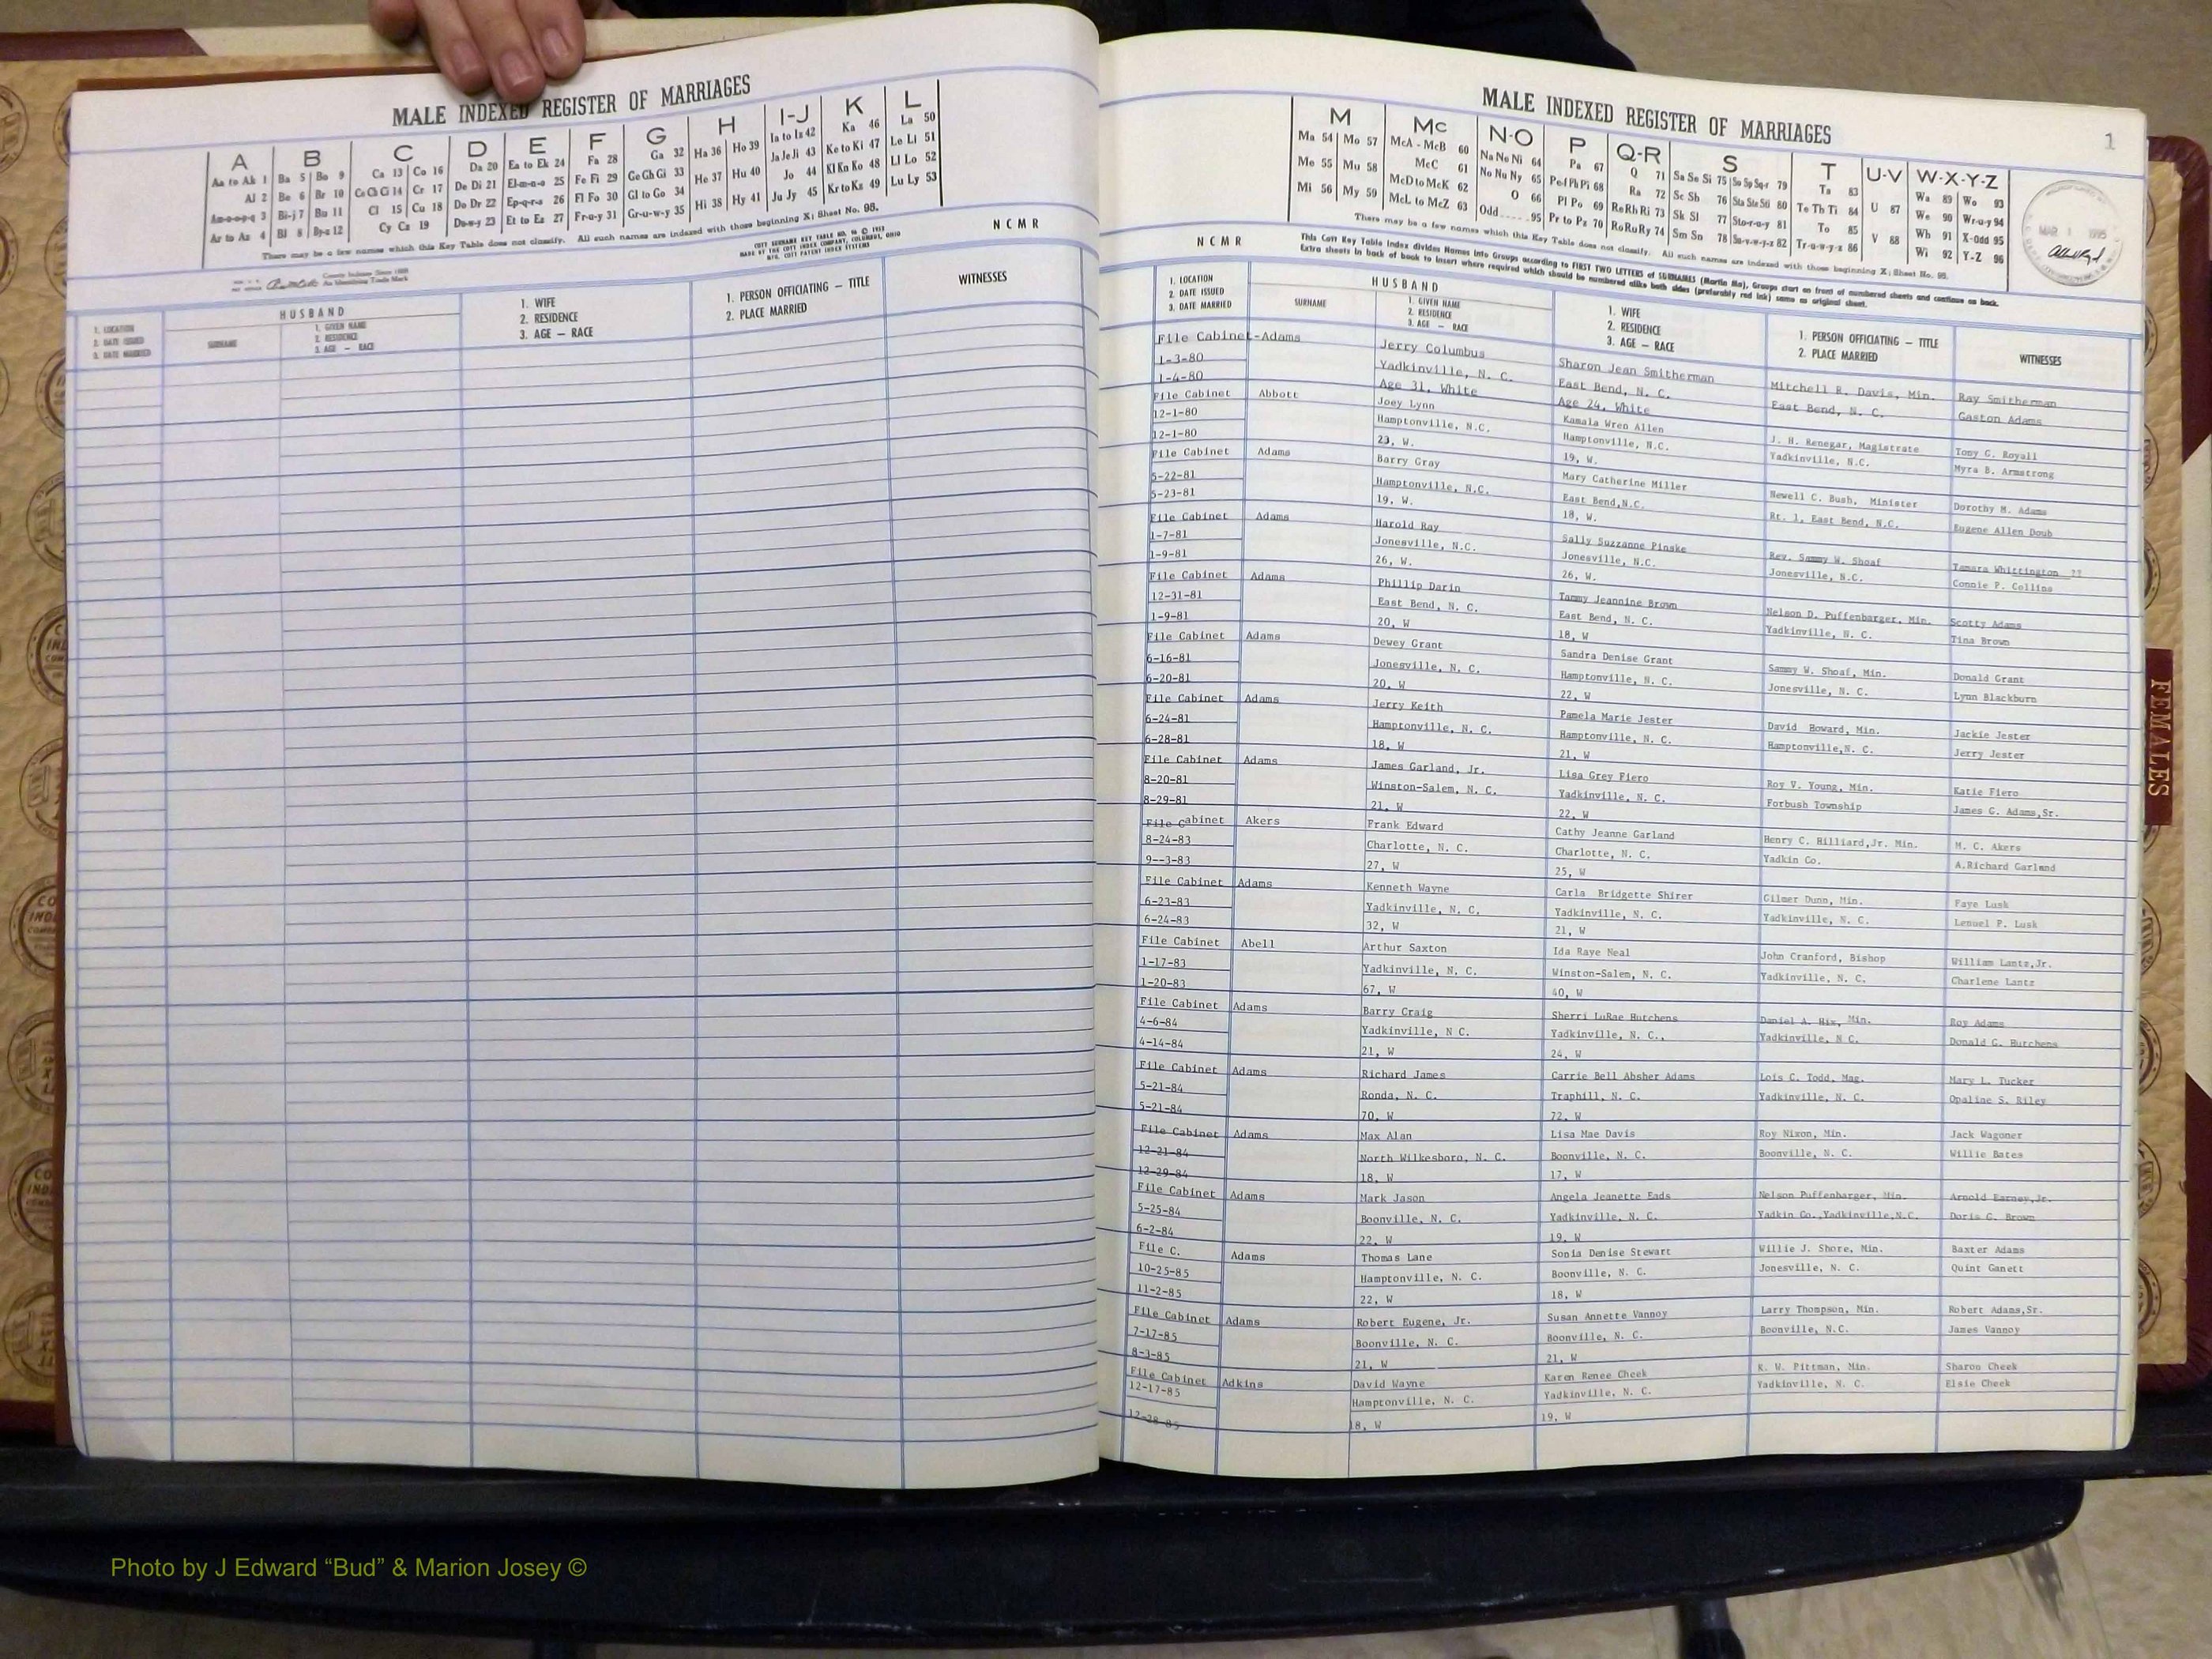 MALE INDEXED REGISTER OF MARRIAGES
A B C D E F G H I-J K L
Aa to Ak 1 Ba 5 Bo 9 Ca 13 Co 16 Da 20 Ea to Ek 24 Fa 28 Ga 32 Ha 36 Ho 39 Ia to Iz 42 Ka 46 La 50
Al 2 Be 6 Br 10 Ce Ch Ci 14 Cr 17 De Di 21 El-m-n-o 25 Fe Fi 29 Ge Gh Gi 33 He 37 Hu 40 Ja Je Ji 43 Ke to Ki 47 Le Li 51
Am-n-o-p-q 3 Bi-j 7 Bu 11 Cl 15 Cu 18 Do Dr 22 Ep-q-r-s 26 Fl Fo 30 Gl to Go 34 Hi 38 Hy 41 Jo 44 Kl Kn Ko 48 Ll Lo 52
Ar to Az 4 Bl 8 By-z 12 Cy Cz 19 Du-w-y 23 Et to Ez 27 Fr-u-y 31 Gr-u-w-y 35 Ju Jy 45 Kr to Kz 49 Lu Ly 53
There may be a few names which this Key Table does not classify. All such names are indexed with those beginning X; Sheet No. 95.
N C M R
HUSBAND
1. LOCATION
2. DATE ISSUED
3. DATE MARRIED
SURNAME
1. GIVEN NAME
2. RESIDENCE
3. AGE — RACE
1. WIFE
2. RESIDENCE
3. AGE — RACE
1. PERSON OFFICIATING — TITLE
2. PLACE MARRIED
WITNESSES
MALE INDEXED REGISTER OF MARRIAGES
1
M Mc N-O P Q-R S T U-V W-X-Y-Z
Ma 54 Mo 57 McA - McB 60 Na Ne Ni 64 Pa 67 Q 71 Sa Se Si 75 So Sp Sq-r 79 Ta 83 U 87 Wa 89 Wo 93
Me 55 Mu 58 McC 61 No Nu Ny 65 Pe-f Ph Pi 68 Ra 72 Sc Sh 76 Sta Ste Sti 80 Te Th Ti 84 V 88 We 90 Wr-u-y 94
Mi 56 My 59 McD to McK 62 O 66 Pl Po 69 Re Rh Ri 73 Sk Sl 77 Sto-r-u-y 81 To 85 Wh 91 X-Odd 95
McL to McZ 63 Odd 95 Pr to Pz 70 Ro Ru Ry 74 Sm Sn 78 Su-v-w-y-z 82 Tr-u-w-y-z 86 Wi 92 Y-Z 96
There may be a few names which this Key Table does not classify. All such names are indexed with those beginning X; Sheet No. 95.
N C M R
This Cott Key Table Index divides Names into Groups according to FIRST TWO LETTERS of SURNAMES (Martin Ma), Groups start on front of numbered sheets and continue on back.
Extra sheets in back of book to insert where required which should be numbered alike both sides (preferably red ink) same as original sheet.
HUSBAND
1. LOCATION
2. DATE ISSUED
3. DATE MARRIED
SURNAME
1. GIVEN NAME
2. RESIDENCE
3. AGE — RACE
1. WIFE
2. RESIDENCE
3. AGE — RACE
1. PERSON OFFICIATING — TITLE
2. PLACE MARRIED
WITNESSES
File Cabinet-Adams Jerry Columbus Sharon Jean Smitherman Mitchell R. Davis, Min. Ray Smitherman
1-3-80 Yadkinville, N. C. East Bend, N. C. East Bend, N. C. Gaston Adams
1-4-80 Age 31, White Age 24, White
File Cabinet Abbott Joey Lynn Kamala Wren Allen J. H. Renegar, Magistrate Tony G. Royall
12-1-80 Hamptonville, N.C. Hamptonville, N.C. Yadkinville, N.C. Myra B. Armstrong
12-1-80 23, W. 19, W.
File Cabinet Adams Barry Gray Mary Catherine Miller Newell C. Bush, Minister Dorothy M. Adams
5-22-81 Hamptonville, N.C. East Bend,N.C. Rt. 1, East Bend, N.C. Eugene Allen Doub
5-23-81 19, W. 18, W.
File Cabinet Adams Harold Ray Sally Suzzanne Pinske Rev. Sammy W. Shoaf Tamara Whittington ??
1-7-81 Jonesville, N.C. Jonesville, N.C. Jonesville, N.C. Connie P. Collins
1-9-81 26, W. 26, W.
File Cabinet Adams Phillip Darin Tammy Jeannine Brown Nelson D. Puffenbarger, Min. Scotty Adams
12-31-81 East Bend, N. C. East Bend, N. C. Yadkinville, N. C. Tina Brown
1-9-81 20, W 18, W
File Cabinet Adams Dewey Grant Sandra Denise Grant Sammy W. Shoaf, Min. Donald Grant
6-16-81 Jonesville, N. C. Hamptonville, N. C. Jonesville, N. C. Lynn Blackburn
6-20-81 20, W 22, W
File Cabinet Adams Jerry Keith Pamela Marie Jester David Howard, Min. Jackie Jester
6-24-81 Hamptonville, N. C. Hamptonville, N. C. Hamptonville,N. C. Jerry Jester
6-28-81 18, W 21, W
File Cabinet Adams James Garland, Jr. Lisa Grey Fiero Roy V. Young, Min. Katie Fiero
8-20-81 Winston-Salem, N. C. Yadkinville, N. C. Forbush Township James G. Adams,Sr.
8-29-81 21, W 22, W
File Cabinet Akers Frank Edward Cathy Jeanne Garland Henry C. Hilliard,Jr. Min. M. C. Akers
8-24-83 Charlotte, N. C. Charlotte, N. C. Yadkin Co. A.Richard Garland
9--3-83 27, W 25, W
File Cabinet Adams Kenneth Wayne Carla Bridgette Shirer Gilmer Dunn, Min. Faye Lusk
6-23-83 Yadkinville, N. C. Yadkinville, N. C. Yadkinville, N. C. Lemuel P. Lusk
6-24-83 32, W 21, W
File Cabinet Abell Arthur Saxton Ida Raye Neal John Cranford, Bishop William Lantz,Jr.
1-17-83 Yadkinville, N. C. Winston-Salem, N. C. Yadkinville, N. C. Charlene Lantz
1-20-83 67, W 40, W
File Cabinet Adams Barry Craig Sherri LuRae Hutchens Daniel A. Hix, Min. Roy Adams
4-6-84 Yadkinville, N C. Yadkinville, N. C., Yadkinville, N C. Donald G. Hutchens
4-14-84 21, W 24, W
File Cabinet Adams Richard James Carrie Bell Absher Adams Lois C. Todd, Mag. Mary L. Tucker
5-21-84 Ronda, N. C. Traphill, N. C. Yadkinville, N. C. Opaline S. Riley
5-21-84 70, W 72, W
File Cabinet Adams Max Alan Lisa Mae Davis Roy Nixon, Min. Jack Wagoner
12-21-84 North Wilkesboro, N. C. Boonville, N. C. Boonville, N. C. Willie Bates
12-29-84 18, W 17, W
File Cabinet Adams Mark Jason Angela Jeanette Eads Nelson Puffenbarger, Min. Arnold Earney,Jr.
5-25-84 Boonville, N. C. Yadkinville, N. C. Yadkin Co.,Yadkinville,N.C. Doris G. Brown
6-2-84 22, W 19, W
File C. Adams Thomas Lane Sonia Denise Stewart Willie J. Shore, Min. Baxter Adams
10-25-85 Hamptonville, N. C. Boonville, N. C. Jonesville, N. C. Quint Ganett
11-2-85 22, W 18, W
File Cabinet Adams Robert Eugene, Jr. Susan Annette Vannoy Larry Thompson, Min. Robert Adams,Sr.
7-17-85 Boonville, N. C. Boonville, N. C. Boonville, N.C. James Vannoy
8-3-85 21, W 21, W
File Cabinet Adkins David Wayne Karen Renee Cheek K. W. Pittman, Min. Sharon Cheek
12-17-85 Hamptonville, N. C. Yadkinville, N. C. Yadkinville, N. C. Elsie Cheek
12-28-85 18, W 19, W
FEMALES
Photo by J Edward “Bud” & Marion Josey ©